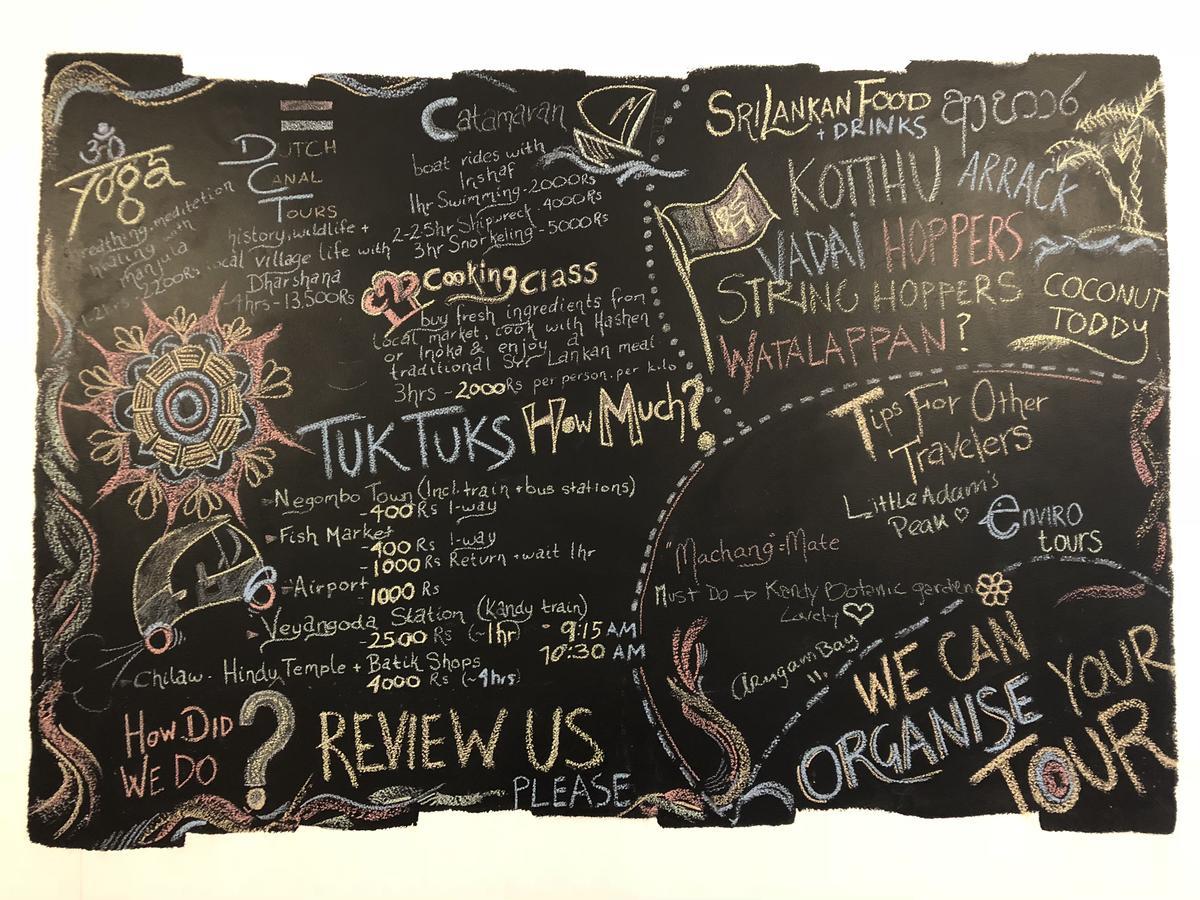 ॐ
Yoga
breathing, meditation
healing with
manjula
2hrs 2200Rs
DUTCH
CANAL
TOURS
history, wildlife +
local village life with
Dharshana
4hrs - 13,500Rs
Catamaran
boat rides with
Irshaf
1hr Swimming - 2000Rs
2-2.5hr Shipwreck - 4000Rs
3hr Snorkeling - 5000Rs
Cooking Class
buy fresh ingredients from
local market, cook with Hashen
or Inoka & enjoy a
traditional Sri Lankan meal
3hrs - 2000Rs per person. per kilo
TUK TUKS How Much?
Negombo Town (Incl. train + bus stations)
- 400 Rs 1-way
Fish Market
- 400 Rs 1-way
- 1000 Rs Return + wait 1hr
Airport
1000 Rs
Veyangoda Station (Kandy train)
- 2500 Rs (~1hr) - 9:15 AM
10:30 AM
Chilaw - Hindy Temple + Batik Shops
4000 Rs (~4hrs)
How Did
WE DO ?
REVIEW US
PLEASE
SRI LANKAN FOOD
+ DRINKS
KOTTHU ARRACK
VADAI HOPPERS
STRING HOPPERS
WATALAPPAN?
COCONUT
TODDY
Tips For Other
Travelers
Little Adam's
Peak ♡
enviro
tours
"Machang" = Mate
Must Do → Kandy Botanic garden
Lovely ♡
Arugam Bay
!!
WE CAN
ORGANISE YOUR
TOUR